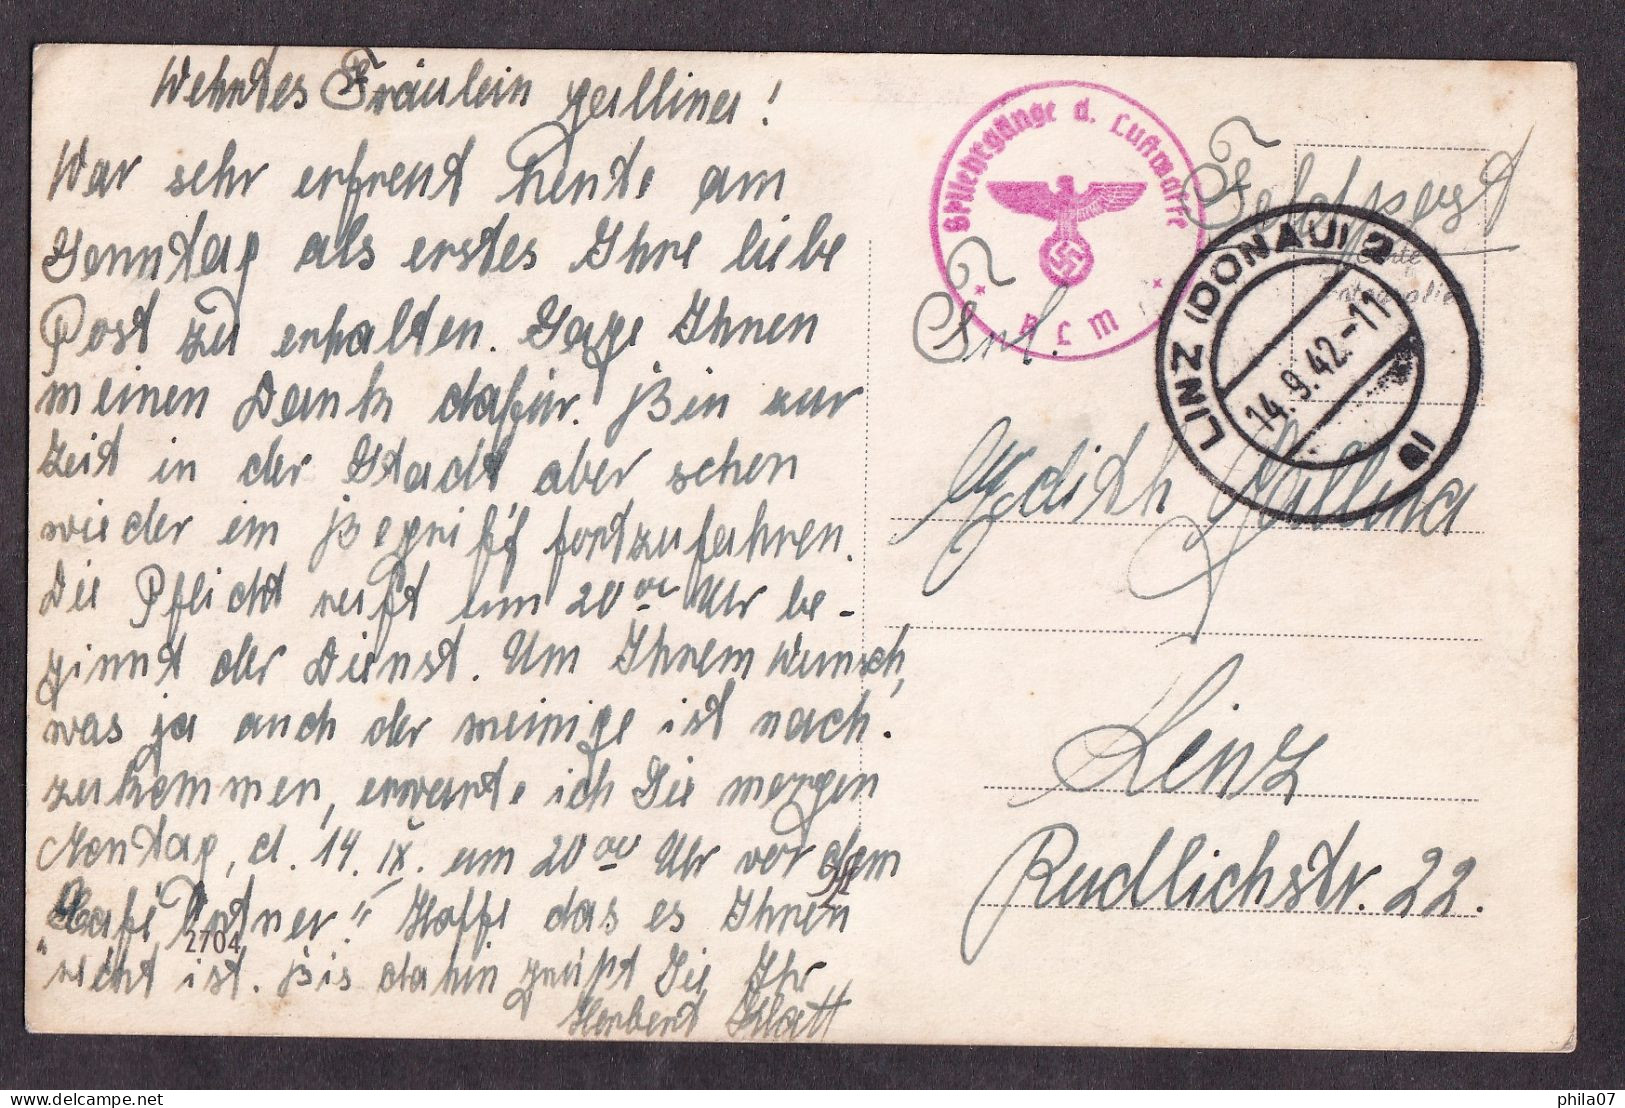 Wehrtes Fräulein Gallina!
War sehr erfreut heute am
Sonntag als erstes Ihre liebe
Post zu erhalten. Sage Ihnen
meinen Dank dafür. Bin zur
Zeit in der Stadt aber schon
wieder im Begriff fortzufahren.
Die Pflicht ruft um 20 00 Uhr be-
ginnt der Dienst. Um Ihrem Wunsch,
was ja auch der meinige ist nach-
zukommen, erwarte ich Sie morgen
Montag, d. 14. IX. um 20 00 Uhr vor dem
"Kafé
" Hoffe das es Ihnen
recht ist. Bis dahin grüßt Sie Ihr
Herbert
2704
Lehrgänge d. Luftwaffe
R L M
Feldpost
LINZ (DONAU) 2
14.9.42.-11
Frl.
Edith Gallina
Linz
Rudlichstr. 22.
phila07